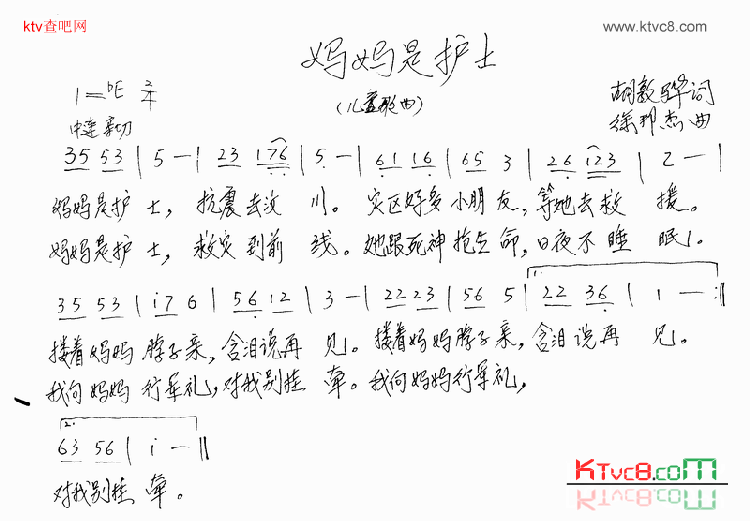 ktv查吧网
www.ktvc8.com
妈妈是护士
(儿童歌曲)
1=bE 2/4
胡敦骅词
中速 亲切
徐邦杰曲
35 53 | 5 — | 23 176 | 5 — | 61 16 | 65 3 | 26 123 | 2 — |
妈妈是护士,抗震去汶川。灾区好多小朋友,等她去救援。
妈妈是护士,救灾到前线。她跟死神抢生命,日夜不睡眠。
35 53 | i76 | 56 12 | 3 — | 22 23 | 56 5 | 1. 22 36 | 1 — :||
搂着妈妈脖子亲,含泪说再见。搂着妈妈脖子亲,含泪说再见。
我向妈妈行军礼,对我别挂牵。我向妈妈行军礼,
2.
63 56 | i — ||
对我别挂牵。
KTVC8.COM